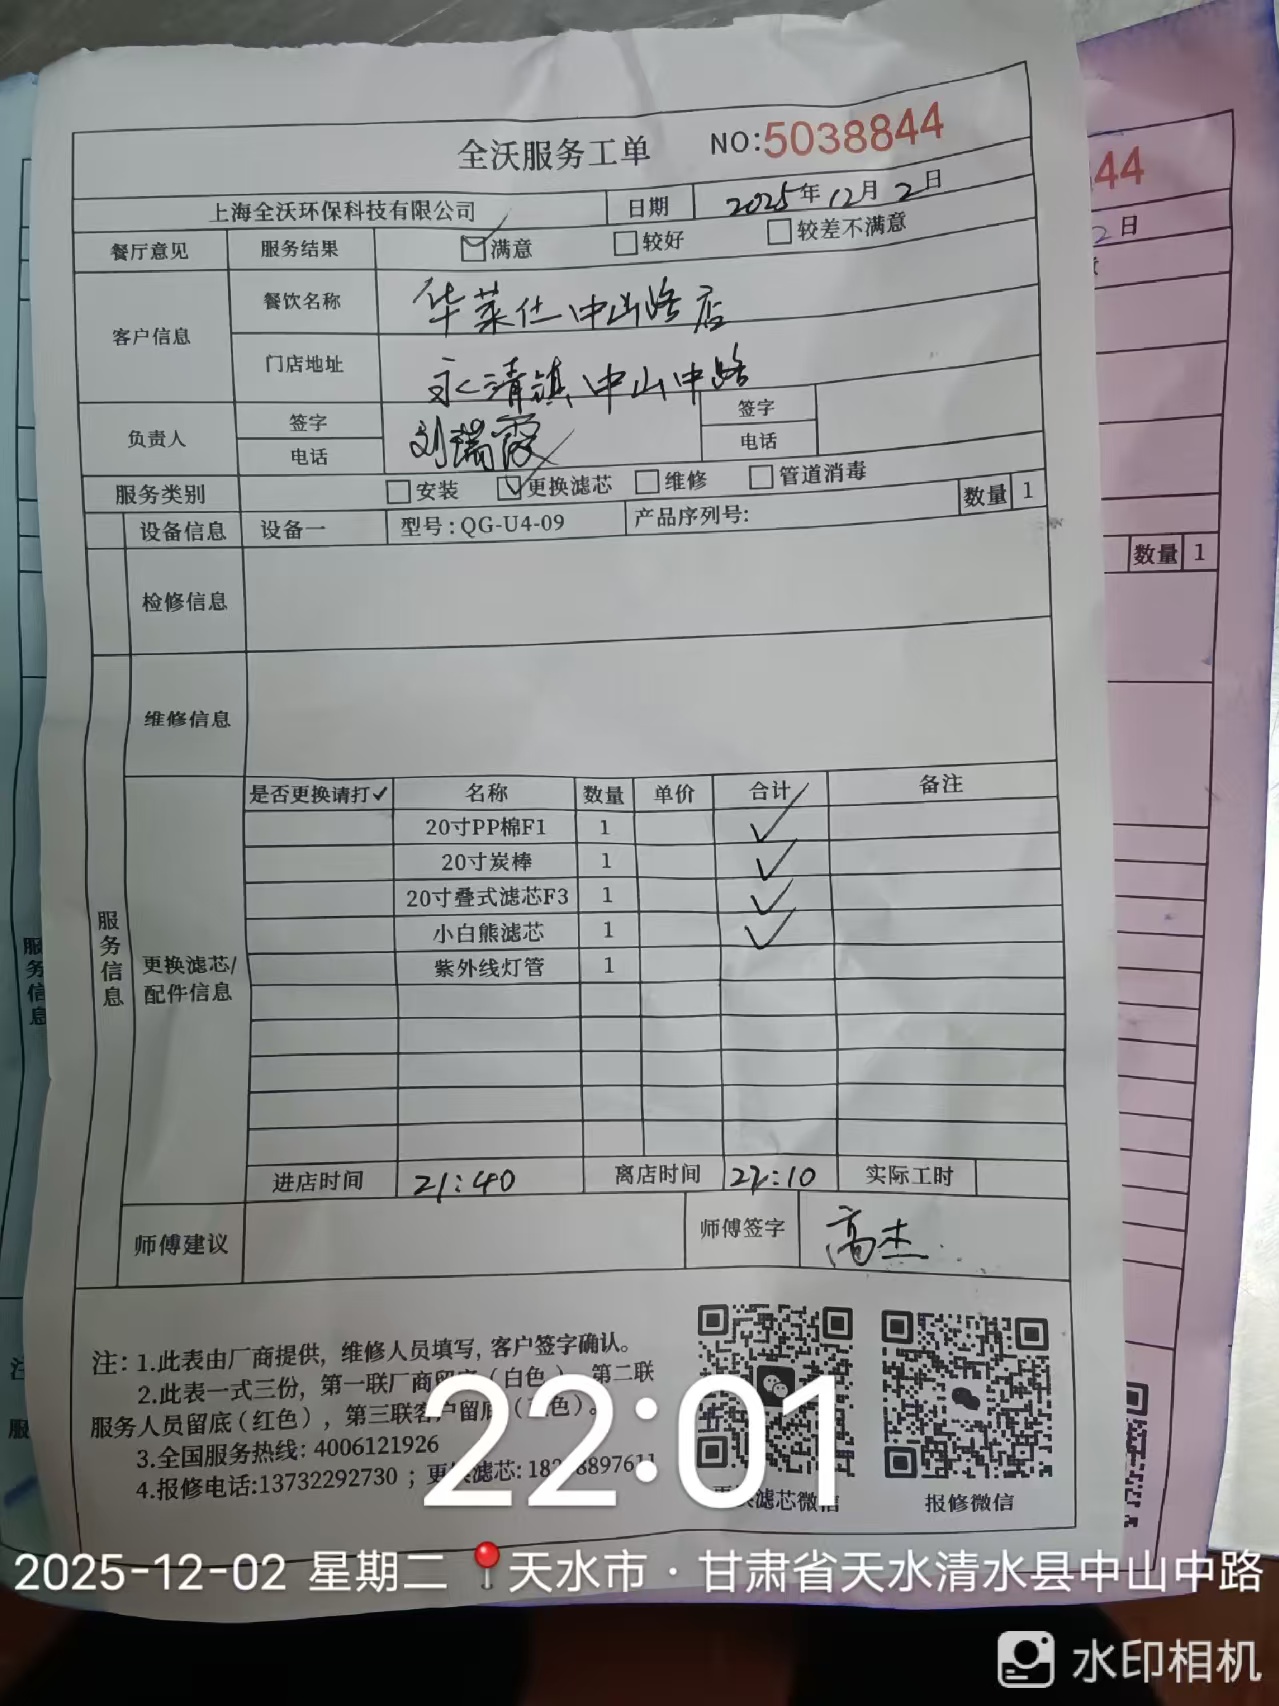 全沃服务工单 NO:5038844
上海全沃环保科技有限公司 日期 2025年12月2日
餐厅意见 服务结果 满意 较好 较差不满意
客户信息 餐饮名称 华莱仕中山路店
门店地址 永清镇中山中路
负责人 签字 刘瑞霞 签字
电话 电话
服务类别 安装 更换滤芯 维修 管道消毒
设备信息 设备一 型号:QG-U4-09 产品序列号: 数量 1
检修信息
维修信息
服务信息
更换滤芯/
配件信息
是否更换请打✓ 名称 数量 单价 合计 备注
20寸PP棉F1 1 ✓
20寸炭棒 1 ✓
20寸叠式滤芯F3 1 ✓
小白熊滤芯 1 ✓
紫外线灯管 1
进店时间 21:40 离店时间 22:10 实际工时
师傅建议 师傅签字 高杰
注:1.此表由厂商提供,维修人员填写,客户签字确认。
2.此表一式三份,第一联厂商留底(白色),第二联
服务人员留底(红色),第三联客户留底(色)。
3.全国服务热线:4006121926
4.报修电话:13732292730;更换滤芯:
更换滤芯微信 报修微信
44
2日
数量 1
服务信息
注
服
22:01
2025-12-02 星期二 天水市·甘肃省天水清水县中山中路
水印相机